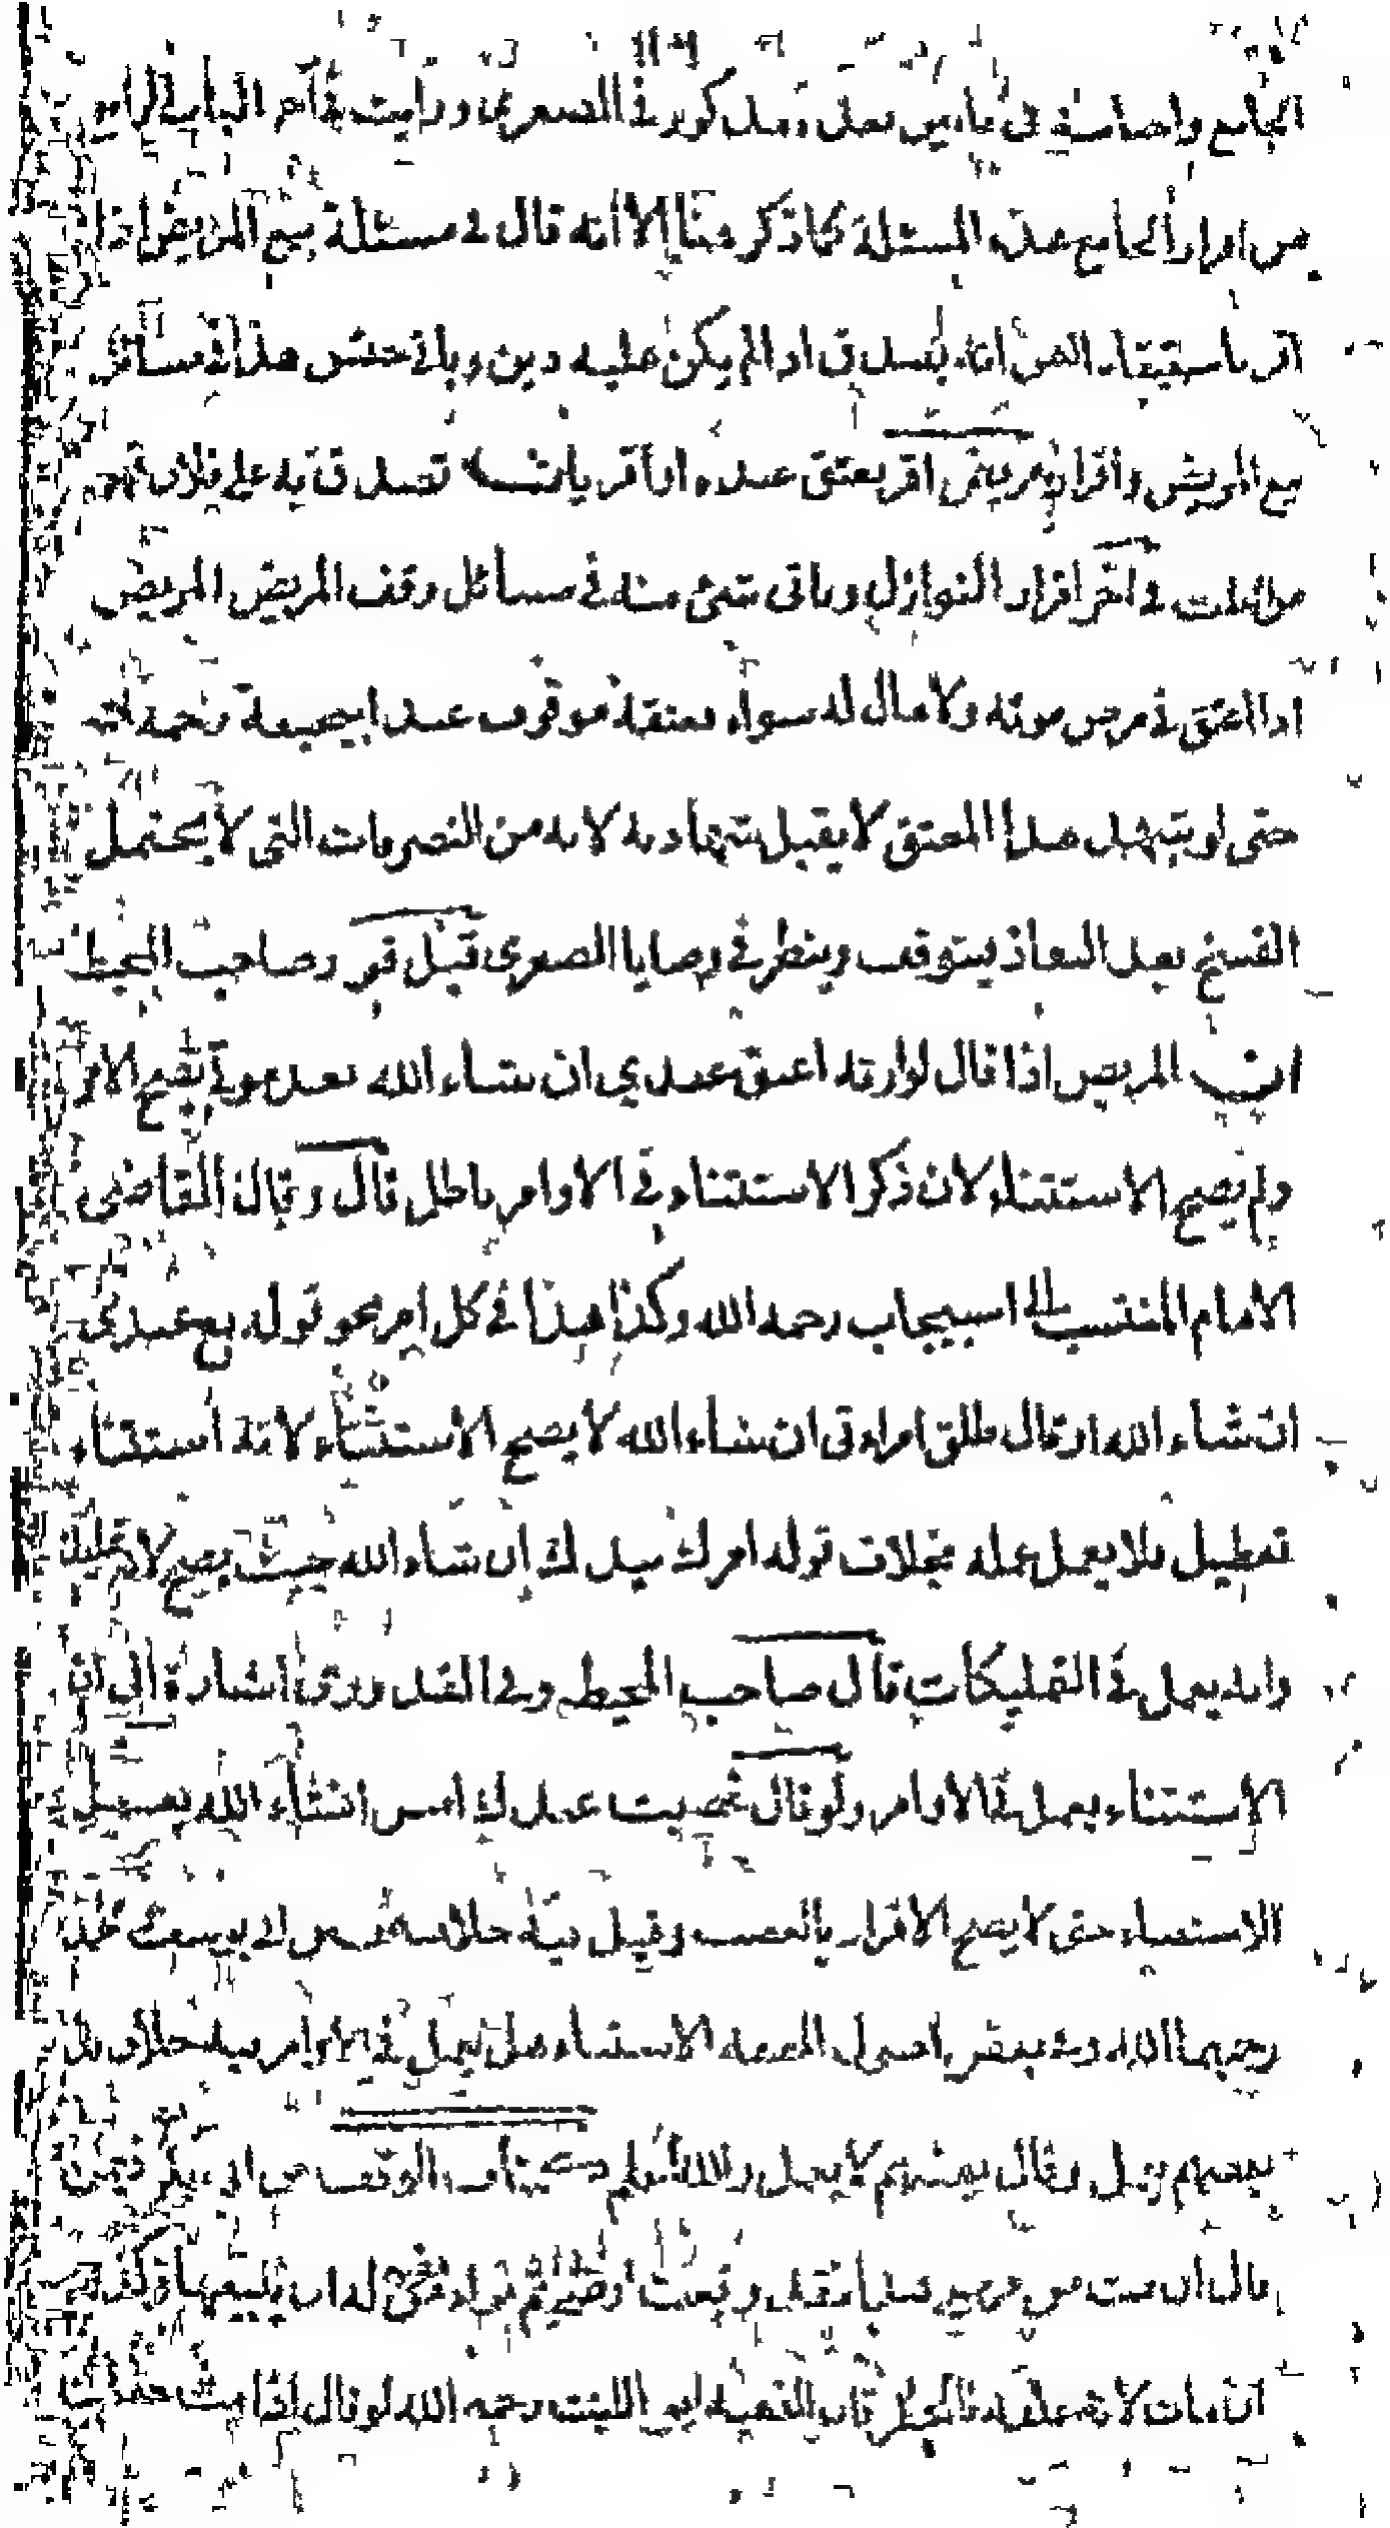 الجامع واضافة في ما بين فصل مذكور في الصغرى ورأيت في آخر الباب
من اقرار الجامع هذه المسئلة كما ذكر هنا الا أنه قال في مسئلة بيع المريض اذا
اقر باستيفاء الثمن انه يصدق اذا لم يكن عليه دين وباقي جنس هذا في مسائل
بيع المريض واقراره مريض اقر بعتق عبده اذا اقر بانه تصدق به على فلان
في آخر اقرار النوازل وباقي شئ منه في مسائل وقف المريض المريض
اذا اعتق في مرض موته ولا مال له سواه فعتقه موقوف عند ابي حنيفة رحمه الله
حتى لو شهد هذا المعتق لا يقبل شهادته لانه من التصرفات التي لا يحتمل
الفسخ بعد النفاذ فيتوقف وينظر في وصايا الصغرى قبل صاحب المحيط
ان المريض اذا قال لوارثه اعتق عبدي ان شاء الله بعد موتي يصح الامر
ولم يصح الاستثناء لان ذكر الاستثناء في الاوامر باطل قال وقال القاضي
الامام المنتسب الى اسبيجاب رحمه الله وكذا هذا في كل امر نحو قوله بع عبدي
ان شاء الله او قال طلق امراتي ان شاء الله لا يصح الاستثناء لانه استثناء
تعطيل فلا يعمل عمله بخلاف قوله امرك بيدك ان شاء الله حيث يصح لانه تمليك
وانه يعمل في التمليكات قال صاحب المحيط وفي القدوري اشارة الى ان
الاستثناء يعمل في الاوامر ولو قال غصبت عبدك امس انشاء الله يعمل
الاستثناء حتى لا يصح الاقرار بالغصب وقيل فيه خلاف بين ابي يوسف ومحمد
رحمهما الله وفي بعض اصول الفقه الاستثناء هل يعمل في الاوامر فيه خلاف قال
بعضهم يعمل وقال بعضهم لا يعمل والله أعلم الوقف
قال ان مت من مرضي هذا فقد وقفت أرضي له ان يبيعها
ان مات لانه علقه بالخطر قال الفقيه ابو الليث رحمه الله لو قال اذا مت